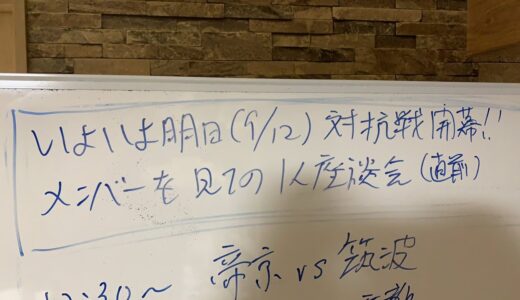 いよいよ明日(9/12)対抗戦開幕!!
メンバーを見ての1人座談会(直前)
12:30〜 帝京 vs 筑波